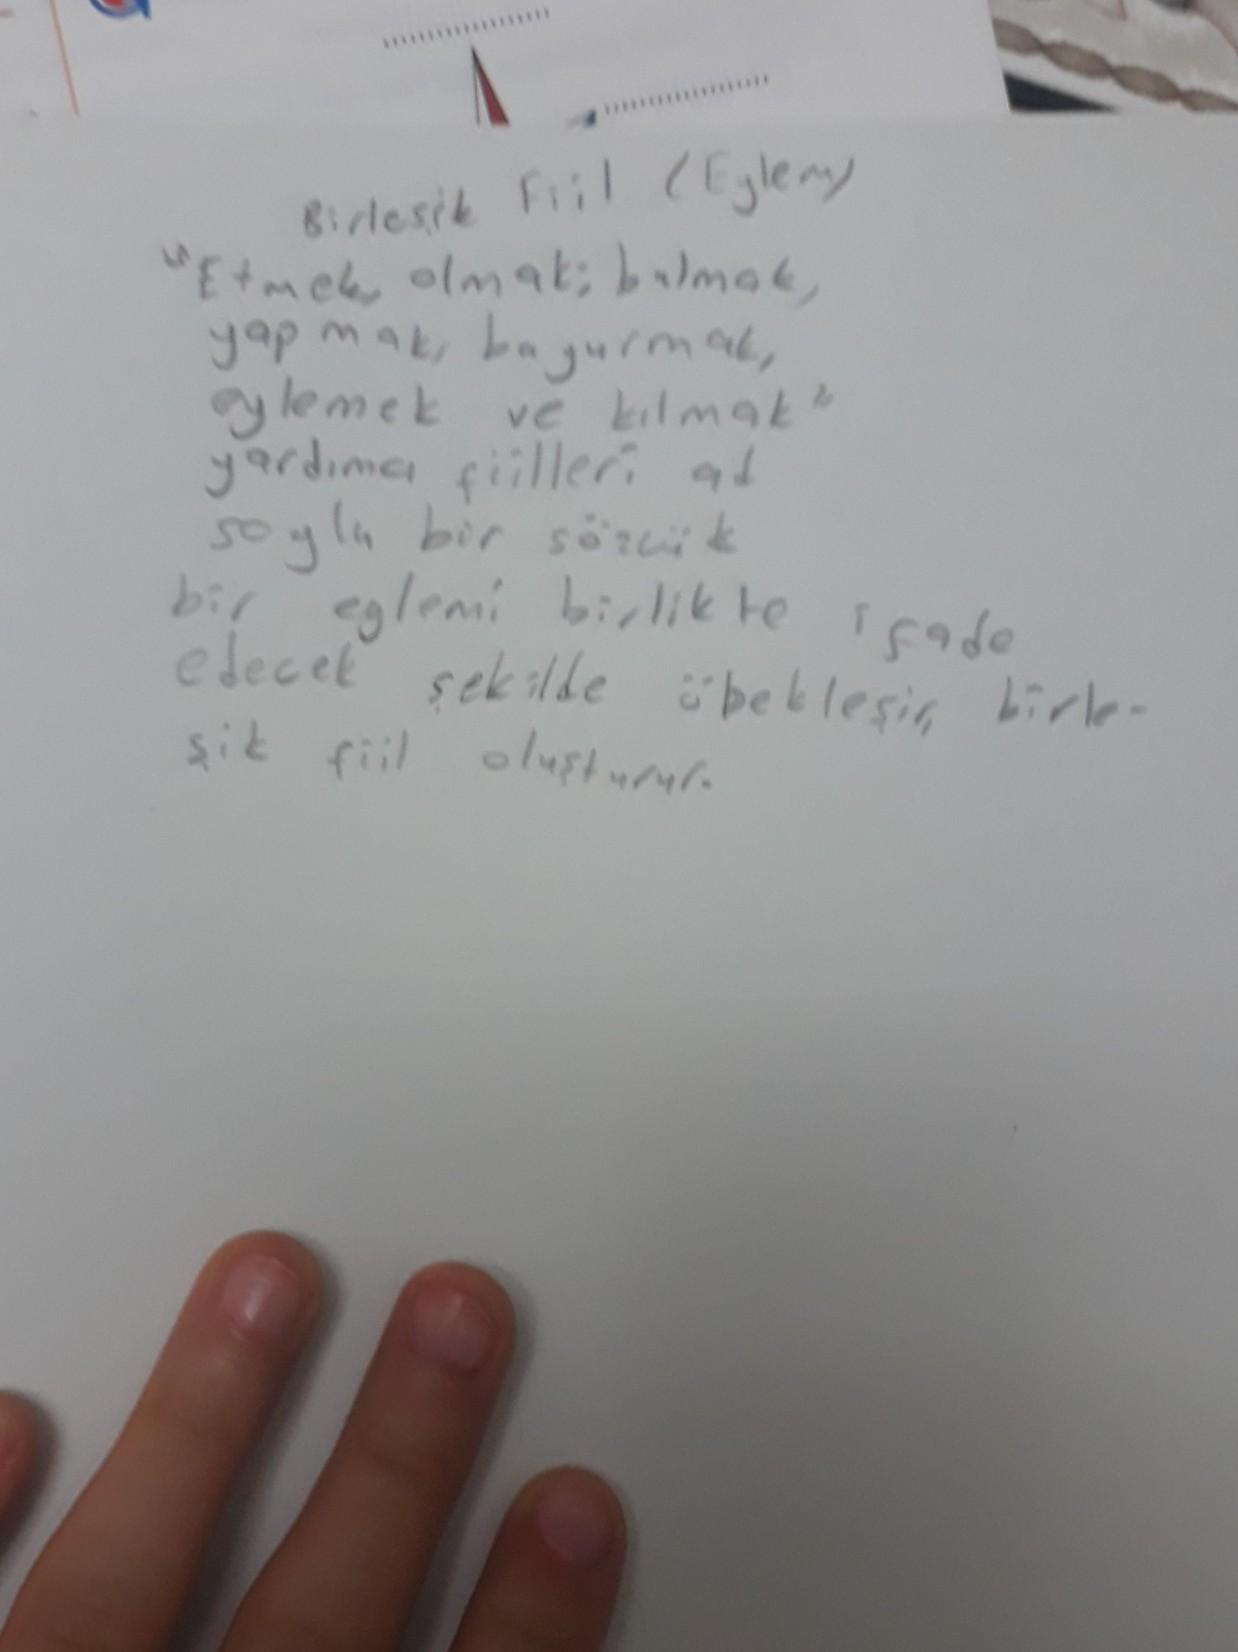 Birleşik Fiil (Eylem)
"Etmek, olmak; bulmak,
yapmak, bayurmak,
eylemek ve kılmak"
yardımcı fiilleri ad
soylu bir sözcük
bir eylemi birlikte ifade
edecek şekilde übekleşir, birle-
şik fiil oluşturur.